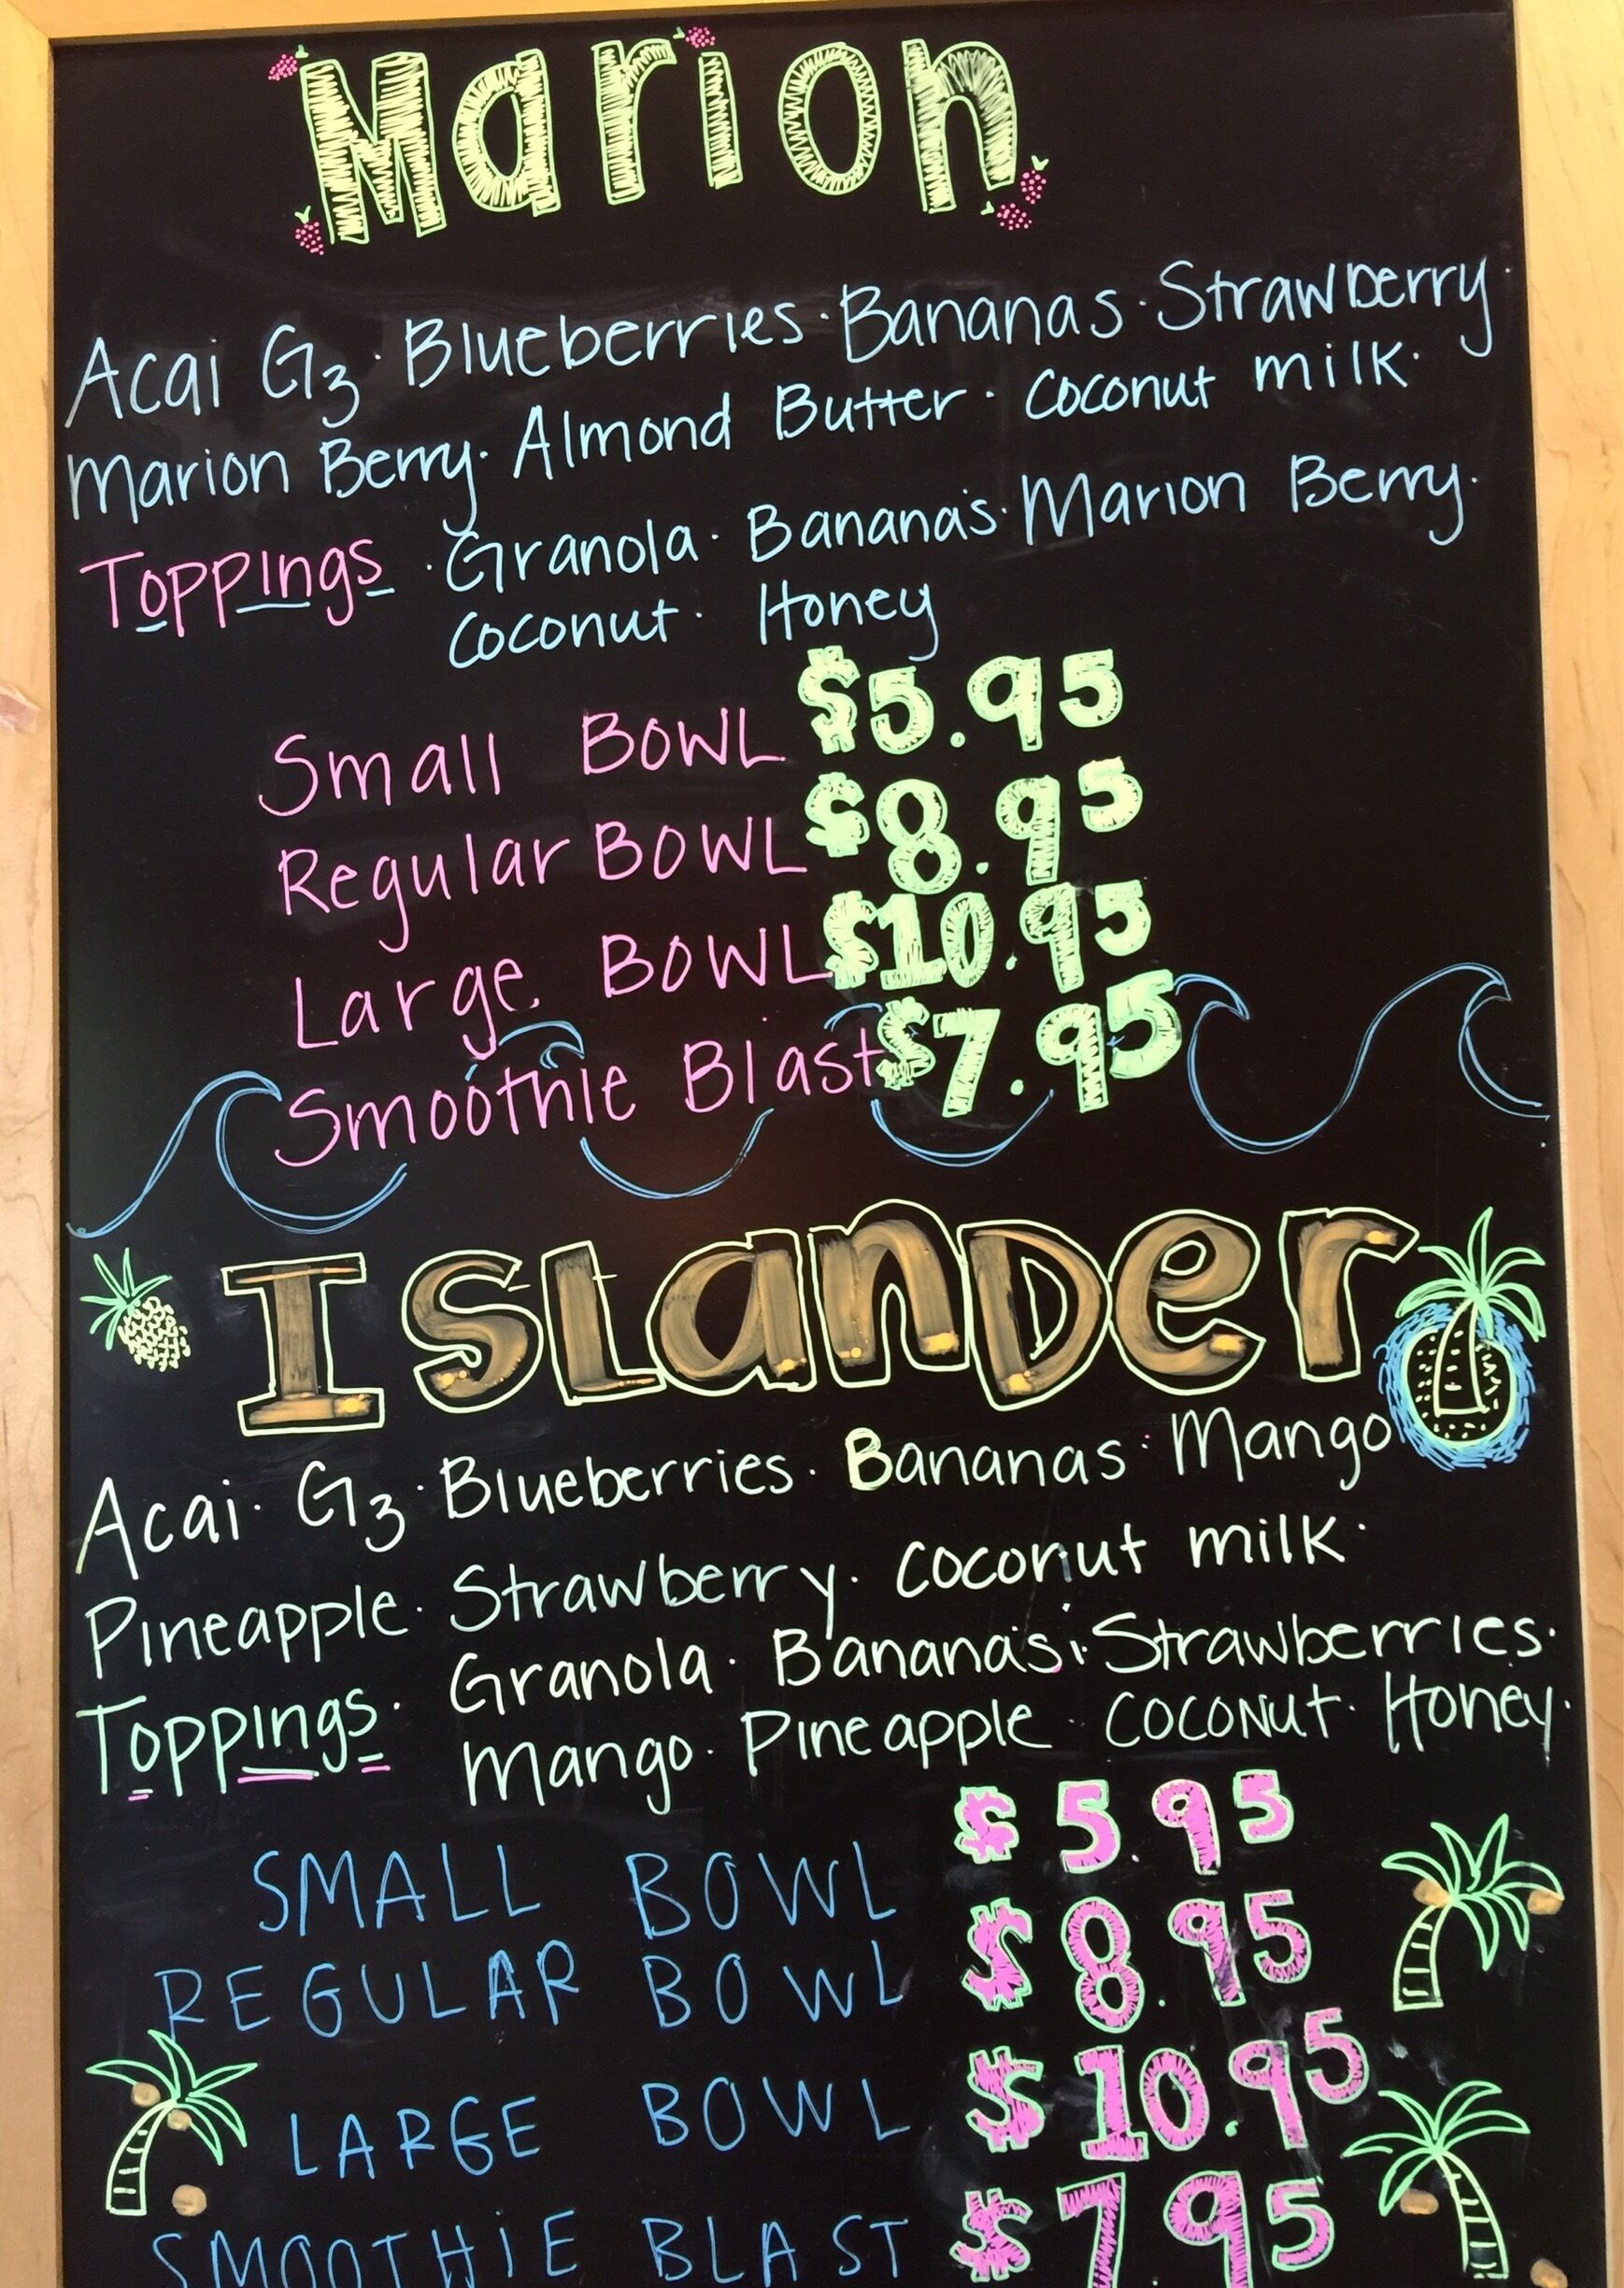 Marion
Acai G3 · Blueberries · Bananas · Strawberry ·
Marion Berry · Almond Butter · Coconut milk ·
Toppings · Granola · Banana's · Marion Berry ·
Coconut · Honey
Small BOWL $5.95
Regular BOWL $8.95
Large BOWL $10.95
Smoothie Blast $7.95
ISLanDer
Acai · G3 · Blueberries · Bananas · Mango
Pineapple · Strawberry · Coconut milk ·
Toppings · Granola · Banana's · Strawberries ·
Mango · Pineapple · COCONUT · Honey ·
SMALL BOWL $5.95
REGULAR BOWL $8.95
LARGE BOWL $10.95
SMOOTHiE BLAST $7.95